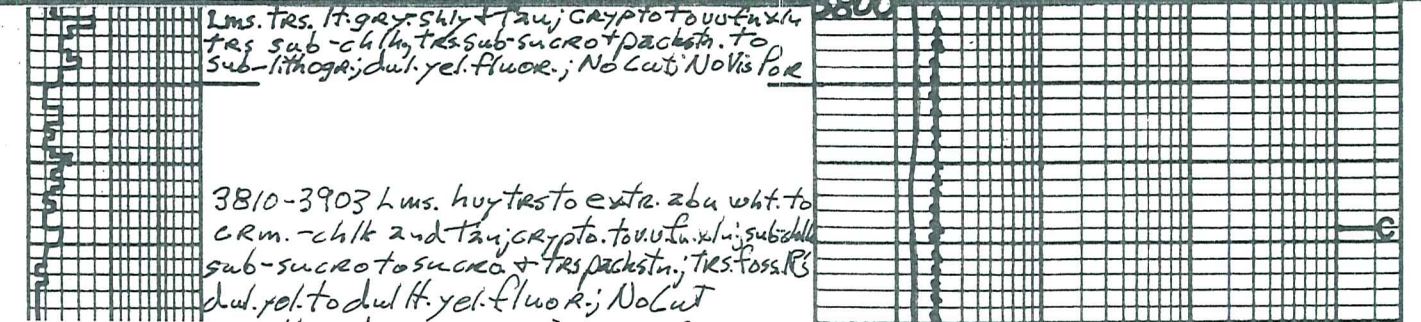 Lms. trs. lt. gry-shly + Tan; CRypto to v.v.fn xln
3800
tRs sub-chlky, tRs. Sub-sucRo + packstn. to
sub-lithogR.; dul. yel. fluoR.; No Cut; No Vis PoR
3810-3903 Lms. hvy tRs to extR. abu wht. to
cRm.-chlk and Tan; cRypto. to v.v.fn.xln; sub-chlk
sub-sucRo to sucRo. + tRs packstn.; tRs. foss. R's
dul. yel. to dul lt. yel. fluoR.; No Cut
C